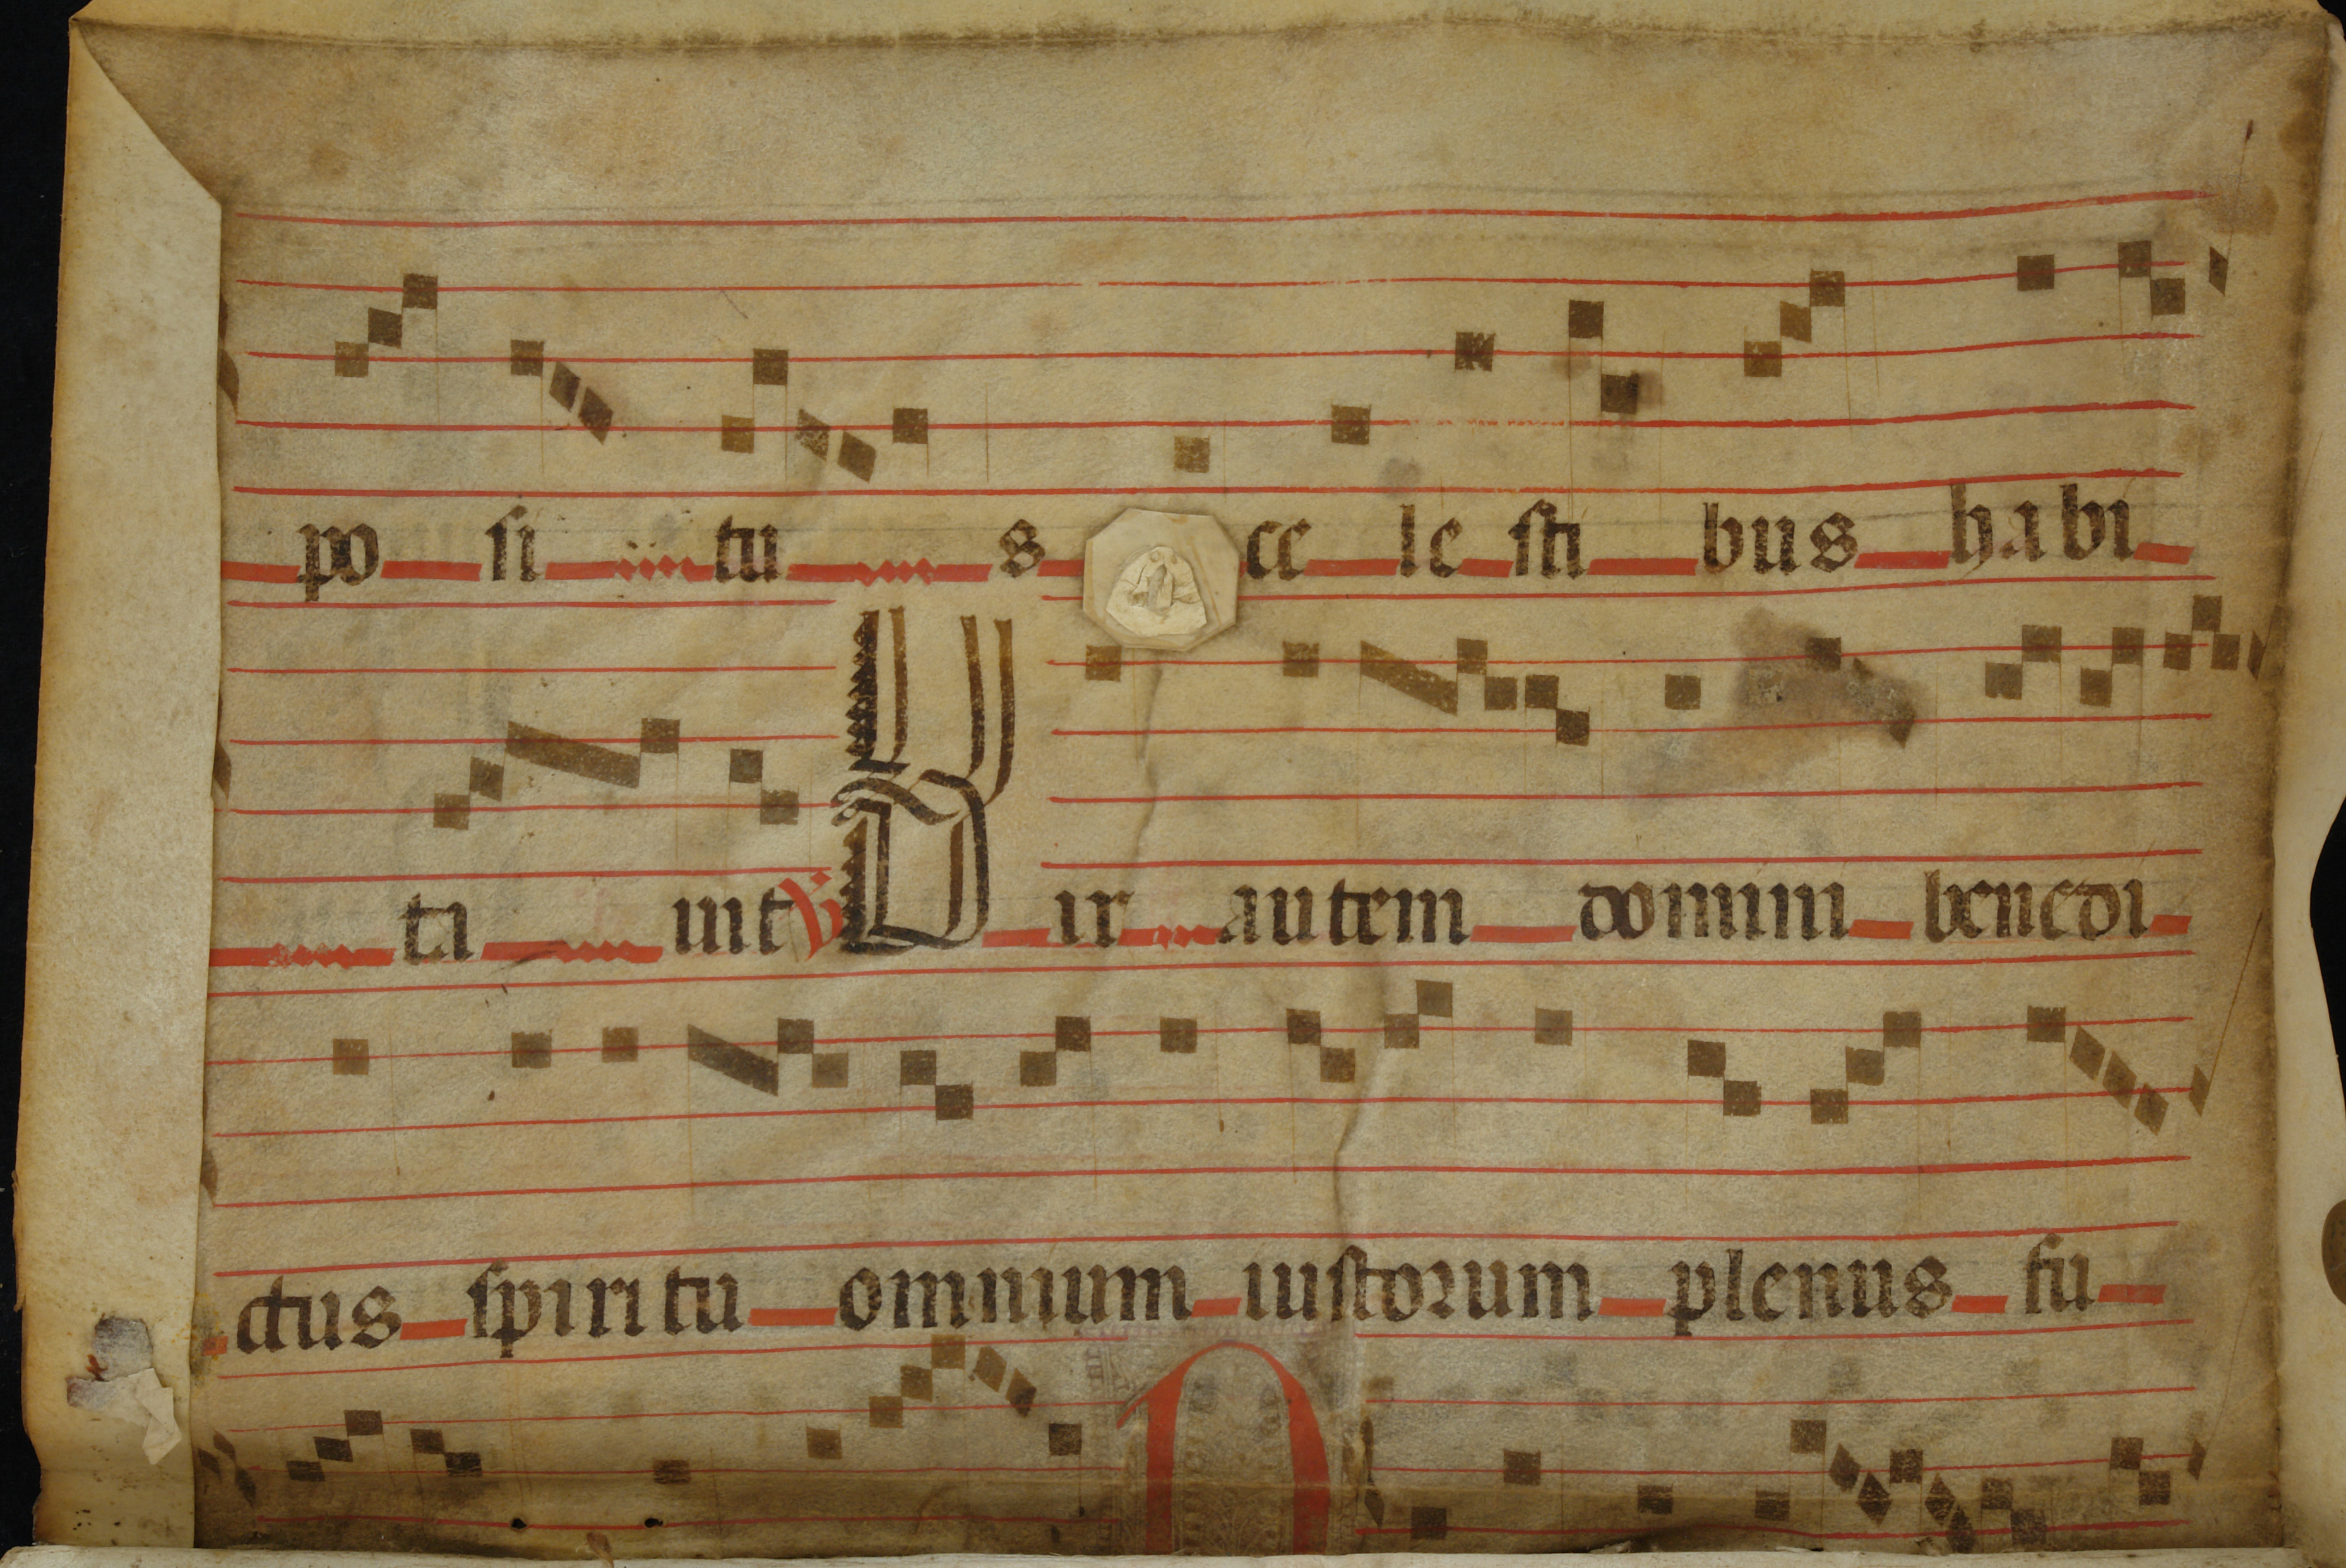 po si tu s ce le sti bus habi
ta uit ℣ Vir autem domini benedi
ctus spiritu omnium iustorum plenus fu